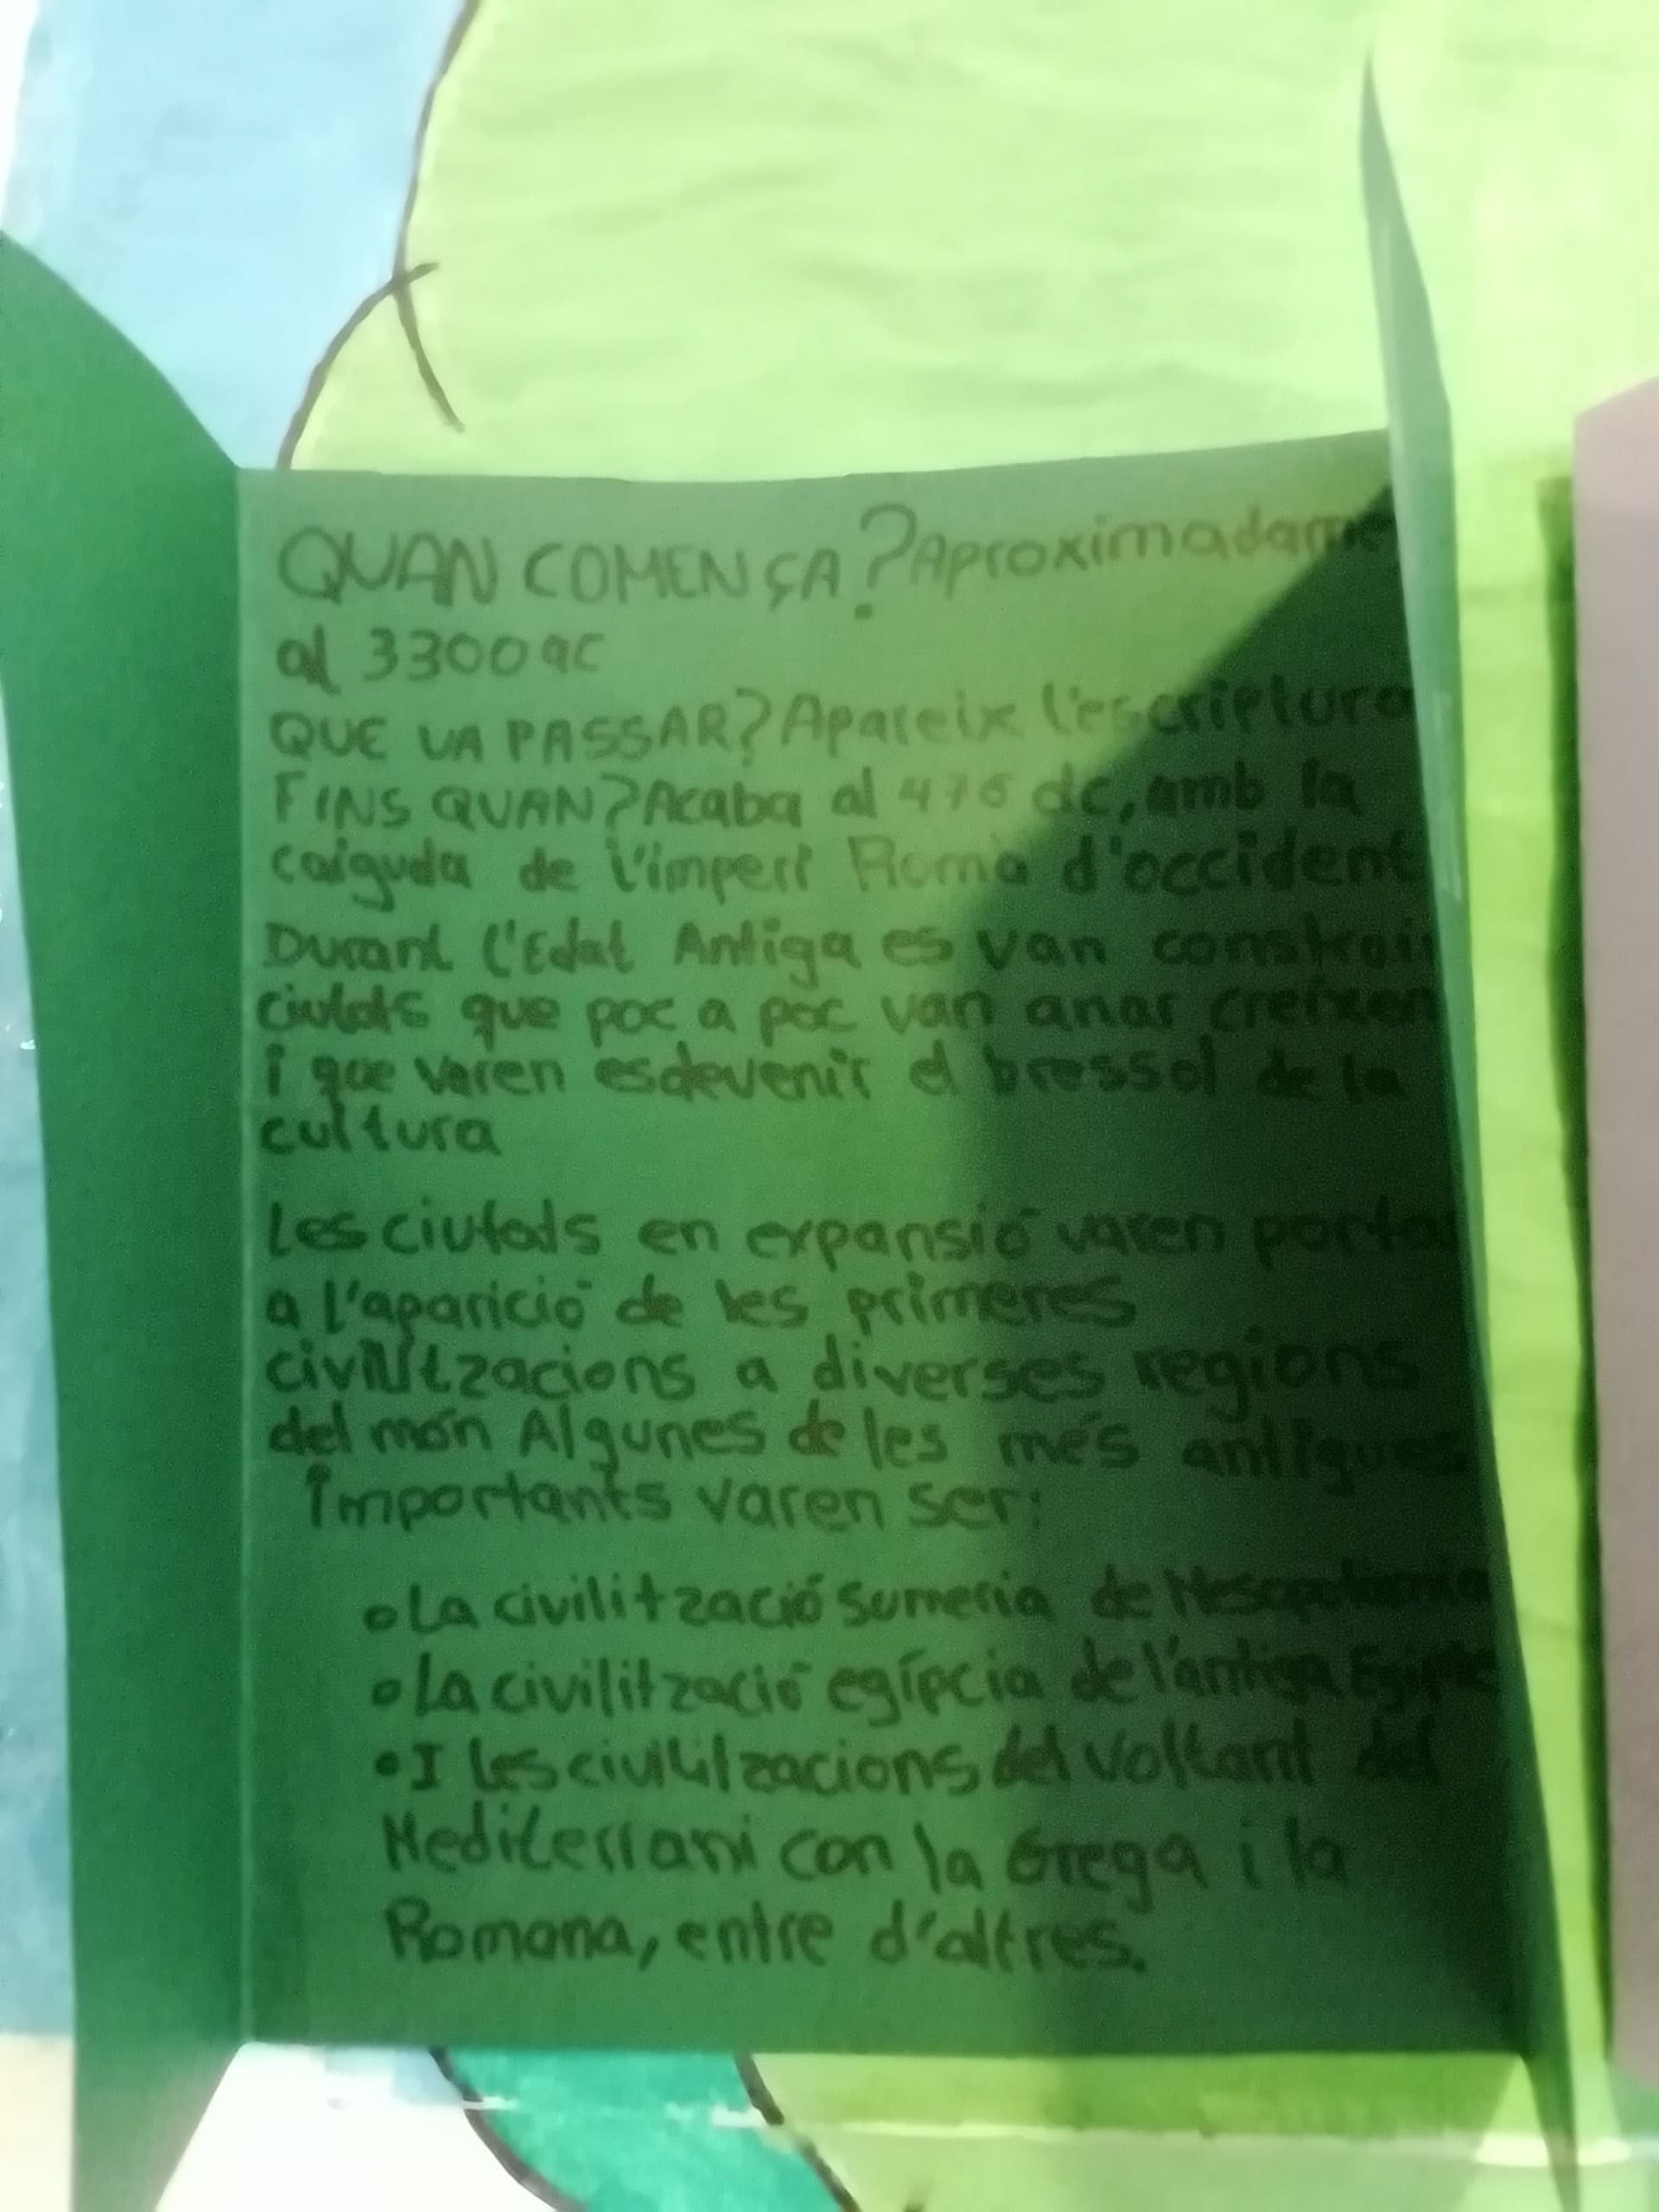 QUAN COMENÇA? Aproximadame
al 3300 aC
QUE VA PASSAR? Apareix l'escriptura
FINS QUAN? Acaba al 476 dc, amb la
caiguda de l'imperi Romà d'occident
Durant l'Edat Antiga es van construir
ciutats que poc a poc van anar creixen
i que varen esdevenir el bressol de la
cultura
Les ciutats en expansió varen portar
a l'aparició de les primeres
civilitzacions a diverses regions
del món Algunes de les més antigues
importants varen ser:
La civilització sumeria de Mesopotamia
La civilització egípcia de l'antiga Egipte
I les civilitzacions del voltant del
Mediterrani con la Grega i la
Romana, entre d'altres.